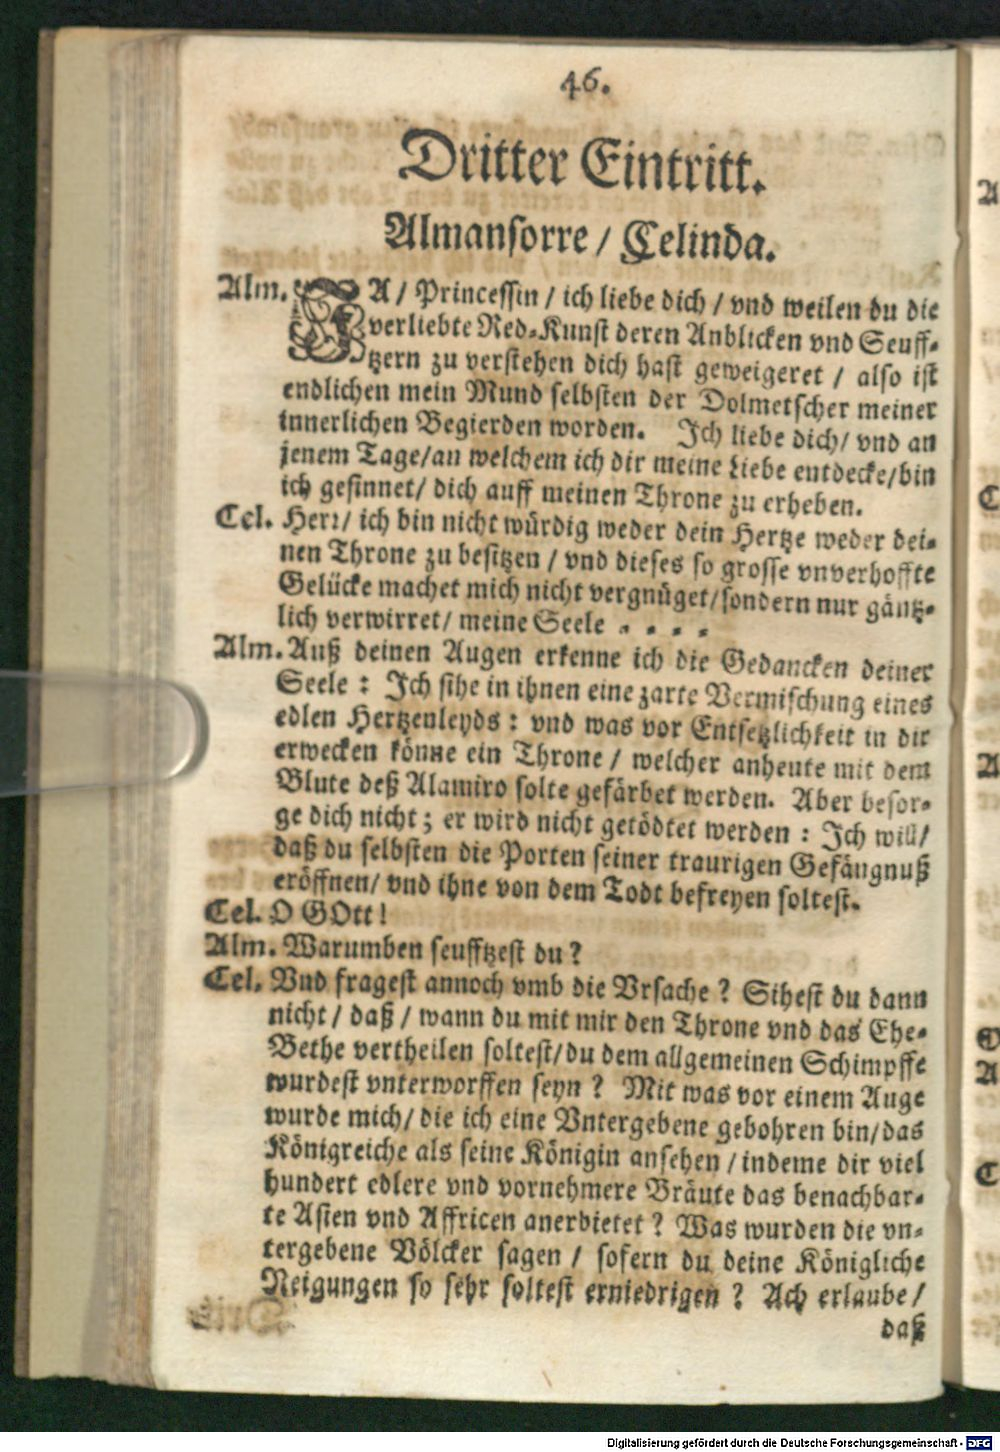 46.
Dritter Eintritt.
Almansorre / Celinda.
Alm. JA / Princessin / ich liebe dich / vnd weilen du die
verliebte Red-Kunst deren Anblicken vnd Seuff-
tzern zu verstehen dich hast geweigeret / also ist
endlichen mein Mund selbsten der Dolmetscher meiner
innerlichen Begierden worden. Ich liebe dich/ vnd an
jenem Tage/an welchem ich dir meine Liebe entdecke/bin
ich gesinnet/ dich auff meinen Throne zu erheben.
Cel. Herr/ ich bin nicht würdig weder dein Hertze weder dei-
nen Throne zu besitzen / vnd dieses so grosse vnverhoffte
Gelücke machet mich nicht vergnüget/sondern nur gäntz-
lich verwirret/ meine Seele - - - -
Alm. Auß deinen Augen erkenne ich die Gedancken deiner
Seele : Ich sihe in ihnen eine zarte Vermischung eines
edlen Hertzenleyds : vnd was vor Entsetzlichkeit in dir
erwecken könne ein Throne / welcher anheute mit dem
Blute deß Alamiro solte gefärbet werden. Aber besor-
ge dich nicht ; er wird nicht getödtet werden : Ich will/
daß du selbsten die Porten seiner traurigen Gefängnuß
eröffnen/ vnd ihne von dem Todt befreyen soltest.
Cel. O GOtt !
Alm. Warumben seufftzest du ?
Cel. Vnd fragest annoch vmb die Vrsache ? Sihest du dann
nicht / daß / wann du mit mir den Throne vnd das Ehe-
Bethe vertheilen soltest/du dem allgemeinen Schimpffe
wurdest vnterworffen seyn ? Mit was vor einem Auge
wurde mich/ die ich eine Vntergebene gebohren bin/das
Königreiche als seine Königin ansehen / indeme dir viel
hundert edlere vnd vornehmere Bräute das benachbar-
te Asien vnd Affricen anerbietet ? Was wurden die vn-
tergebene Völcker sagen / sofern du deine Königliche
Neigungen so sehr soltest erniedrigen ? Ach erlaube /
daß
Digitalisierung gefördert durch die Deutsche Forschungsgemeinschaft - DFG